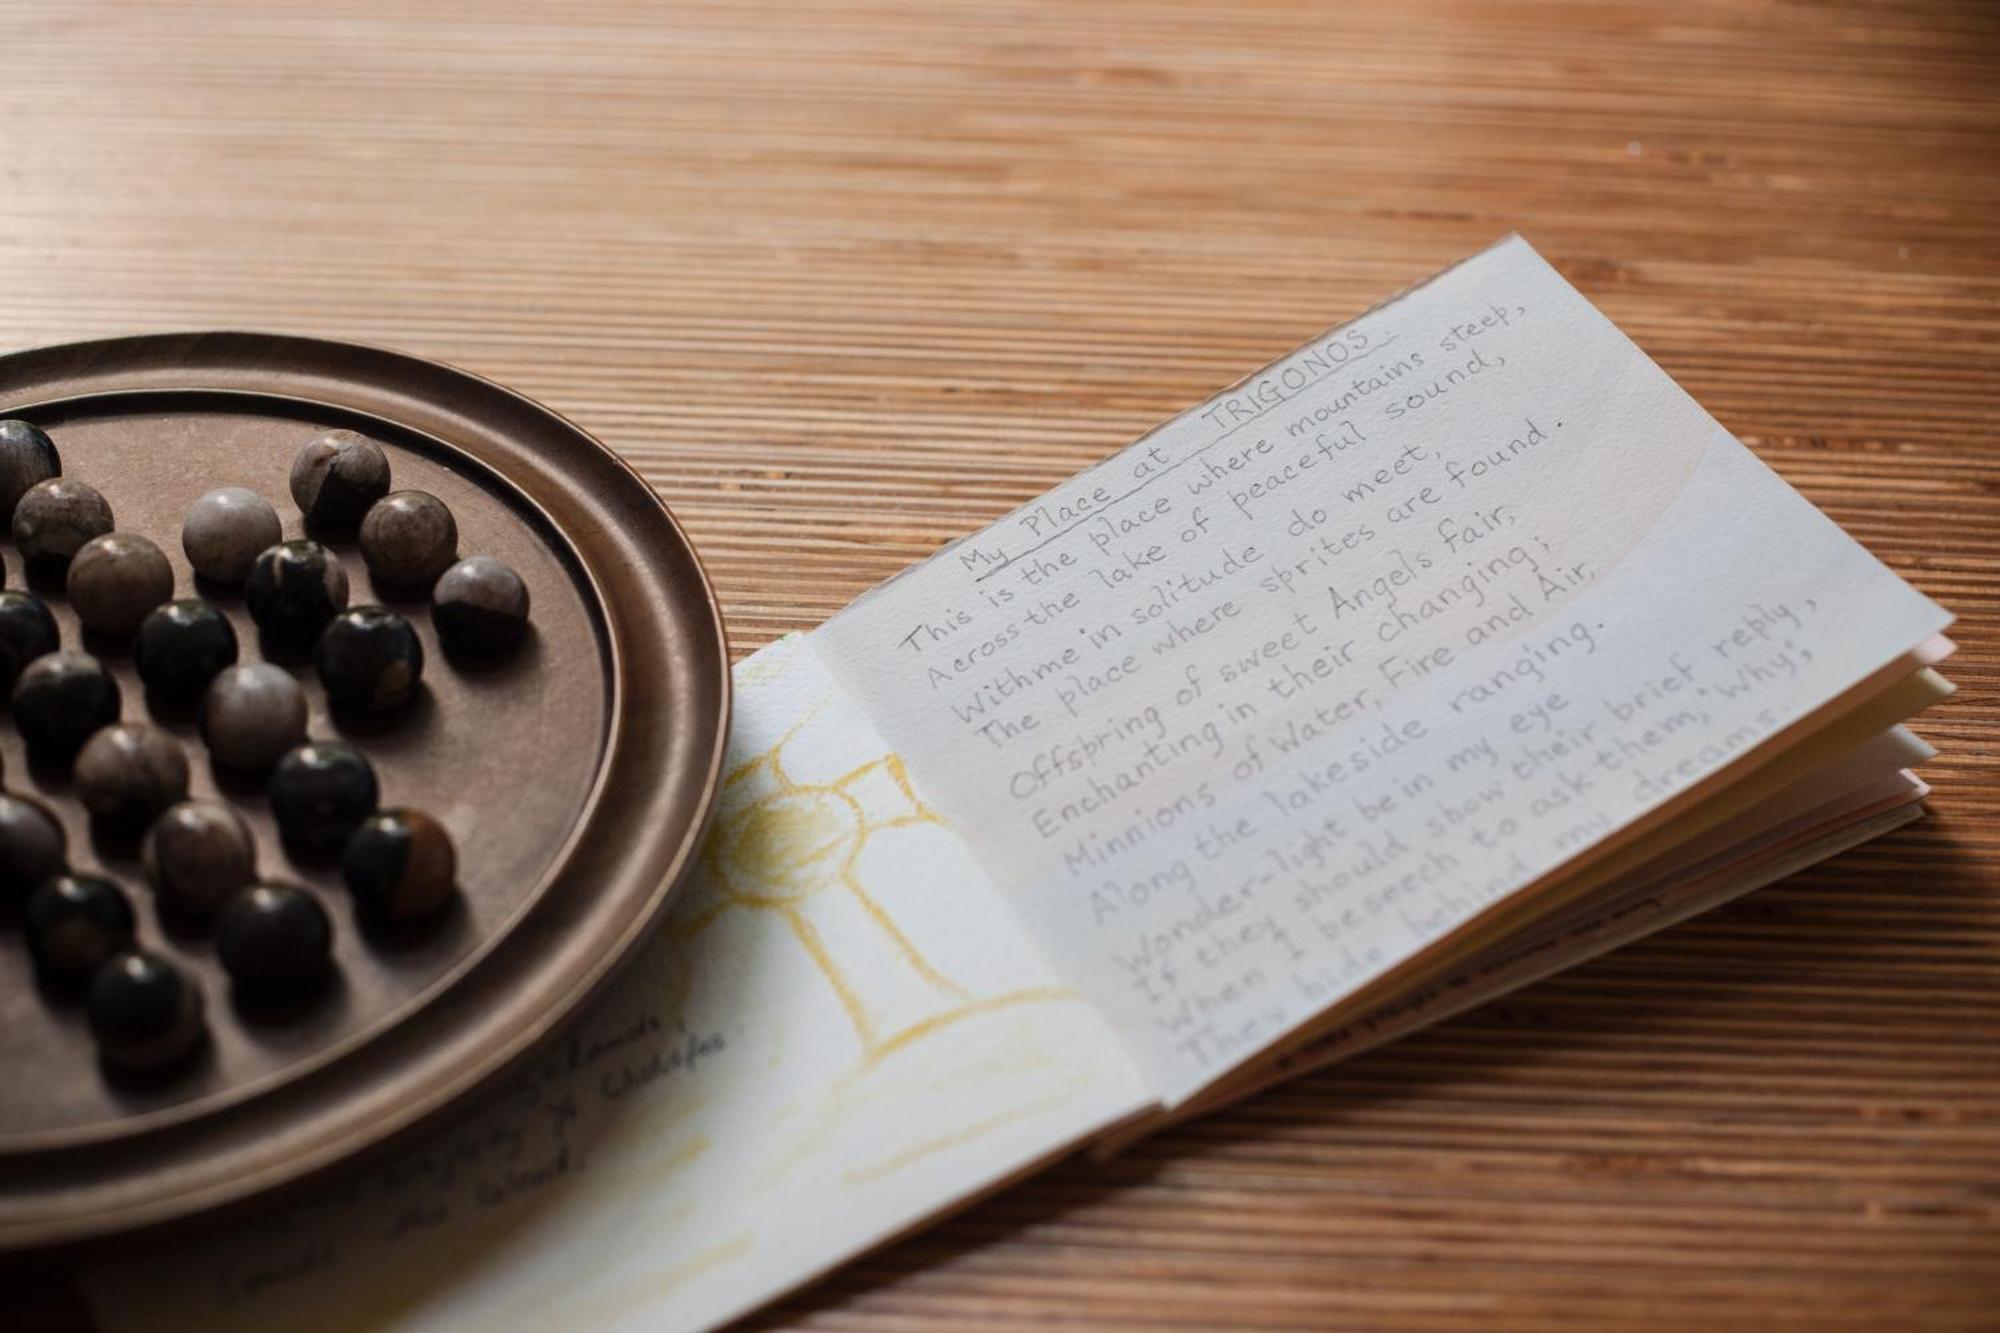 My Place at TRIGONOS.
This is the place where mountains steep,
Across the lake of peaceful sound,
With me in solitude do meet,
The place where sprites are found.
Offspring of sweet Angels fair,
Enchanting in their changing;
Minnions of Water, Fire and Air,
Along the lakeside ranging.
Wonder-light be in my eye
If they should show their brief reply,
When I beseech to ask them, "Why",
They hide behind my dreams.
the